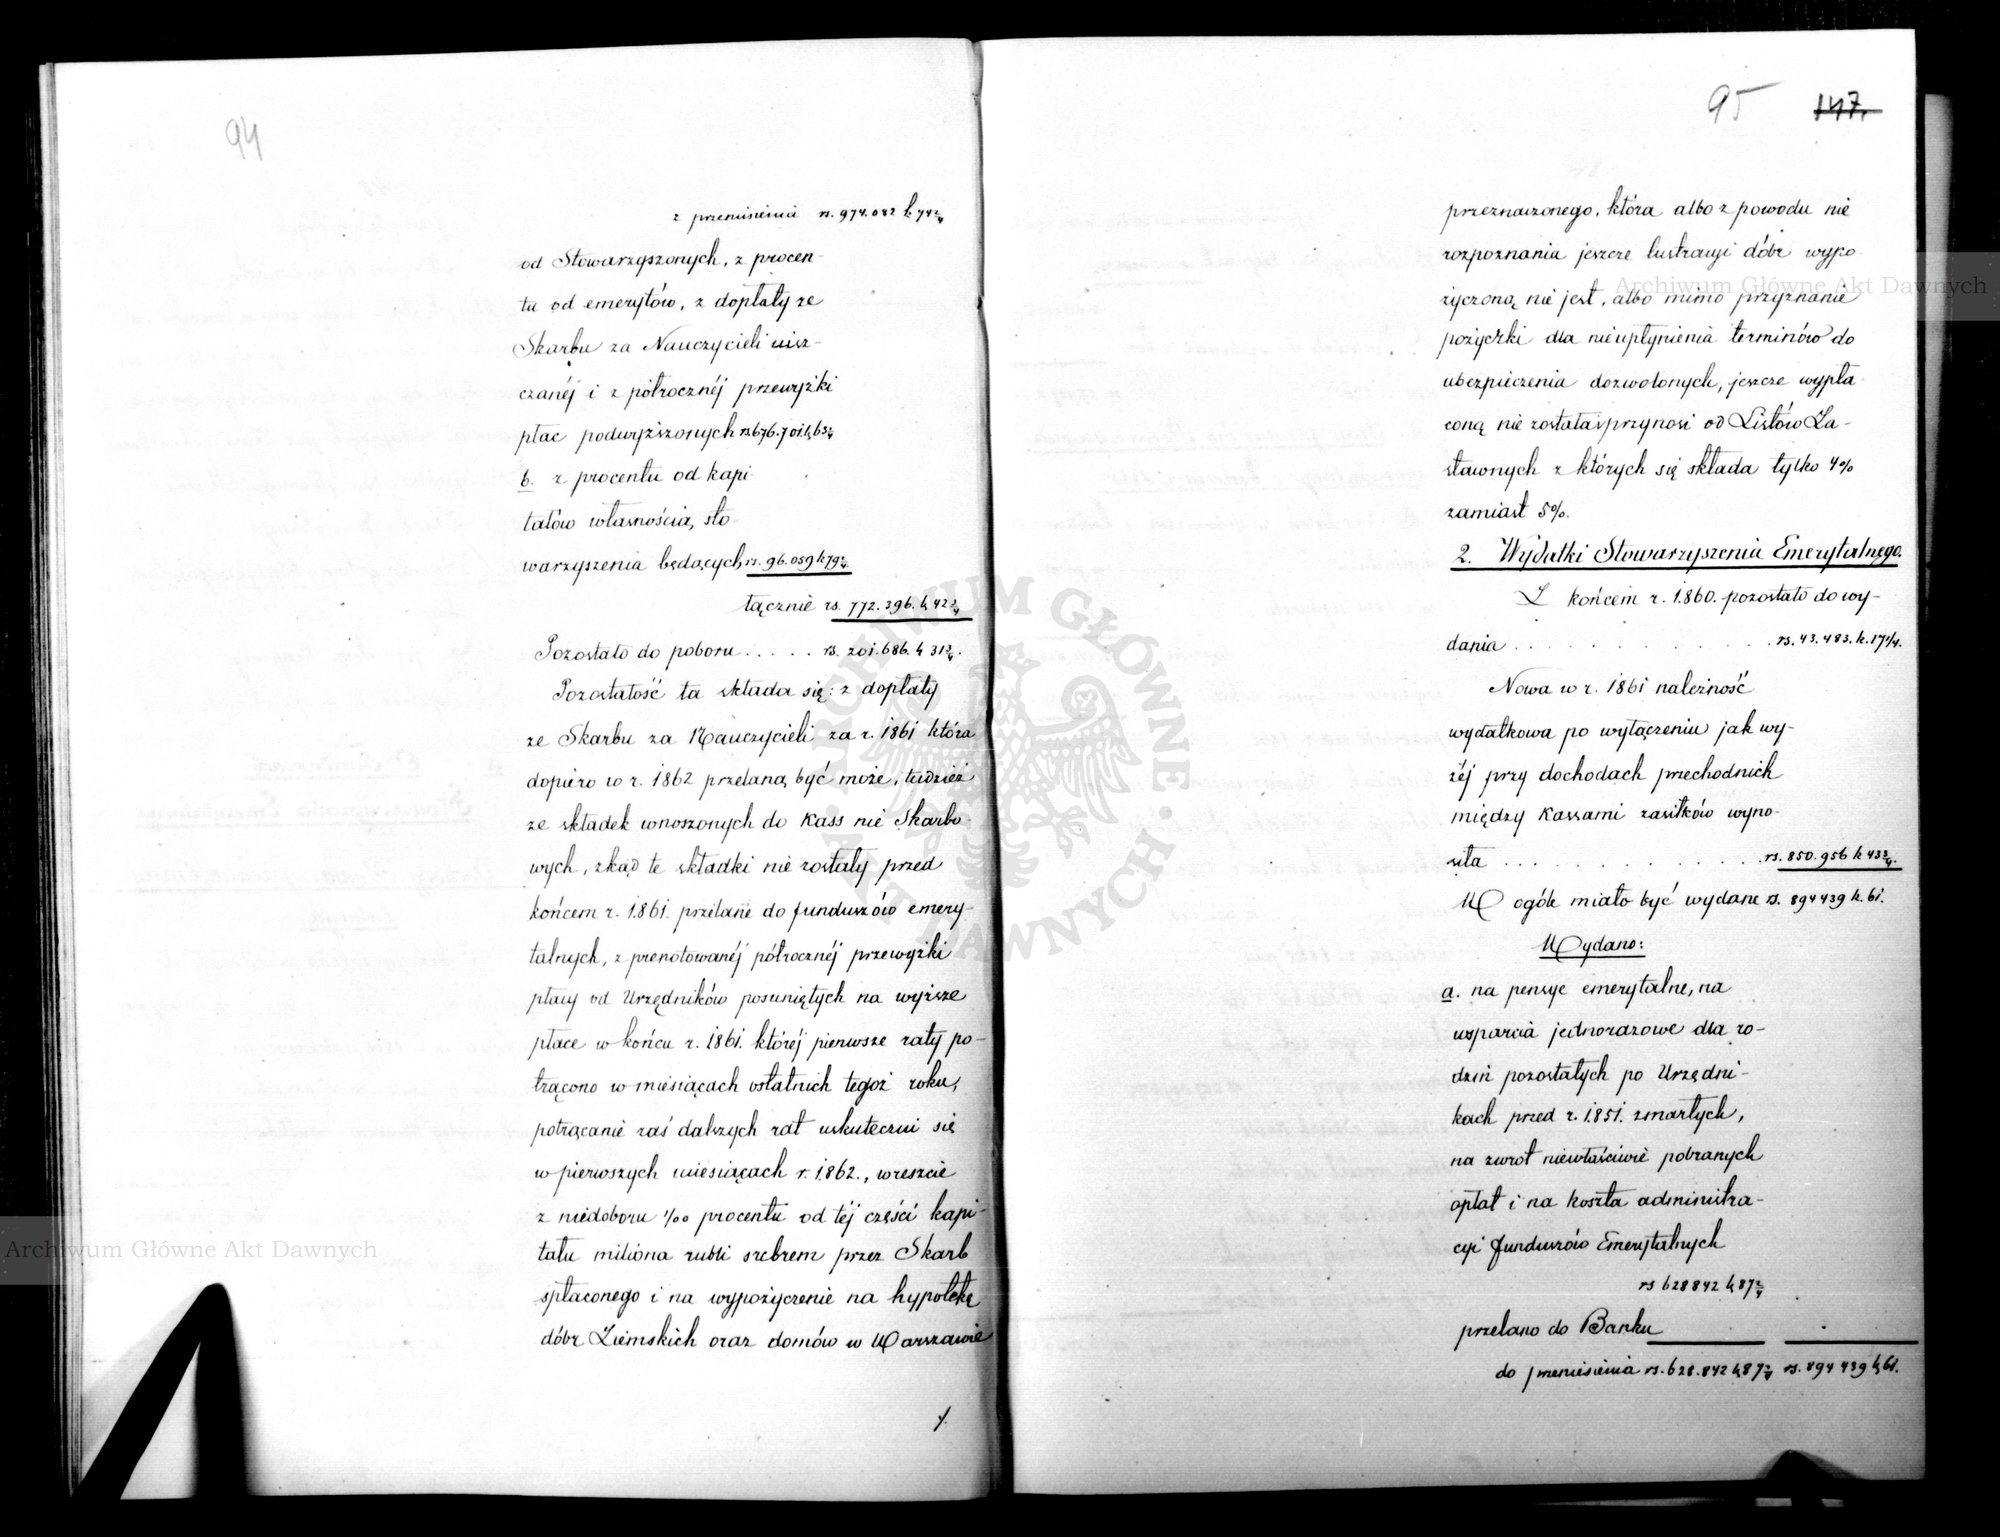 94
z przeniesienia rs. 974.082 k 74 2/4
od Stowarzyszonych, z procen-
tu od emerytów, z dopłaty ze
Skarbu za Nauczycieli uisz-
czanéj i z półrocznéj przewyżki
płac podwyższonych rs 676.701. k 63 2/4
b. z procentu od kapi
tałów własnością sto-
warzyszenia będących rs. 96.059 k 79 2/4
łącznie rs. 772.396. k 42 3/4
Pozostało do poboru ..... rs. 201.686. k 31 3/4.
Pozostałość ta składa się: z dopłaty
ze Skarbu za Nauczycieli za r. 1861 która
dopiero w r. 1862 przelaną być może, tudzież
ze składek wnoszonych do Kass nie Skarbo-
wych, zkąd te składki nie zostały przed
końcem r. 1861. przelane do funduszów emery-
talnych, z prenotowanéj półrocznéj przewyżki
płacy od Urzędników posuniętych na wyższe
płace w końcu r. 1861. któréj pierwsze raty po-
trącono w miesiącach ostatnich tegoż roku,
potrącanie zaś dalszych rat uskuteczni się
w pierwszych miesiącach r. 1862., wreszcie
z niedoboru 1/00 procentu od téj części kapi-
tału miliona rubli srebrem przez Skarb
spłaconego i na wypożyczenie na hypotekę
dóbr Ziemskich oraz domów w Warszawie
95 147.
przeznaczonego, która albo z powodu nie
rozpoznania jeszcze lustracyi dóbr wypo-
życzoną nie jest, albo mimo przyznanie
pożyczki dla nieupłynienia terminów do
ubezpieczenia dozwolonych, jeszcze wypła-
coną nie została i przynosi od Listów Za-
stawnych z których się składa tylko 4%
zamiast 5%.
2. Wydatki Stowarzyszenia Emerytalnego.
Z końcem r. 1860. pozostało do wy-
dania . . . . . . . . . . rs. 43.483. k. 17 1/4.
Nowa w r. 1861 należność
wydatkowa po wyłączeniu jak wy-
żéj przy dochodach przechodnich
między Kassami zasiłków wyno-
siła . . . . . . . . . . rs. 850.956 k 43 3/4.
W ogóle miało być wydane rs. 894439 k. 61.
Wydano:
a. na pensye emerytalne, na
wsparcia jednorazowe dla ro-
dzin pozostałych po Urzędni-
kach przed r. 1851. zmarłych,
na zwrot niewłaściwie pobranych
opłat i na koszta administra-
cyi funduszów Emerytalnych
rs 628842 k 87 2/4
przelano do Banku
do przeniesienia rs. 628.842 k 87 2/4 rs. 894439 k 61.
Archiwum Główne Akt Dawnych
Archiwum Główne Akt Dawnych
ARCHIWUM GŁÓWNE AKT DAWNYCH